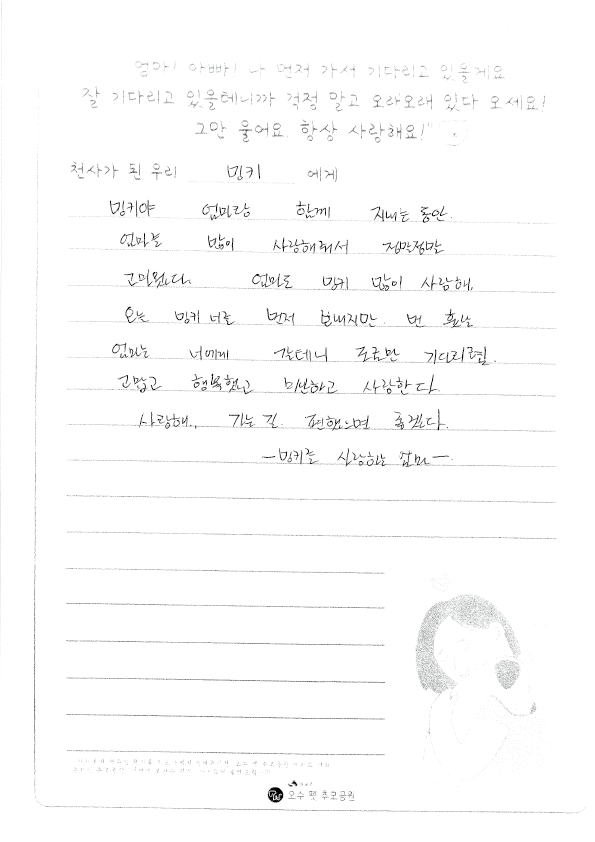 엄마! 아빠! 나 먼저 가서 기다리고 있을게요
잘 기다리고 있을테니까 걱정 말고 오래오래 있다 오세요!
그만 울어요. 항상 사랑해요!"
천사가 된 우리 밍키 에게
밍키야 엄마랑 함께 지내는 동안.
엄마를 많이 사랑해줘서 정말정말
고마웠다. 엄마도 밍키 많이 사랑해.
오늘 밍키 너를 먼저 보내지만 먼 훗날
엄마는 너에게 갈테니 조금만 기다리렴.
고맙고 행복했고 미안하고 사랑한다
사랑해., 가는 길. 편했으면 좋겠다.
-밍키를 사랑하는 엄마-.
오수 펫 추모공원